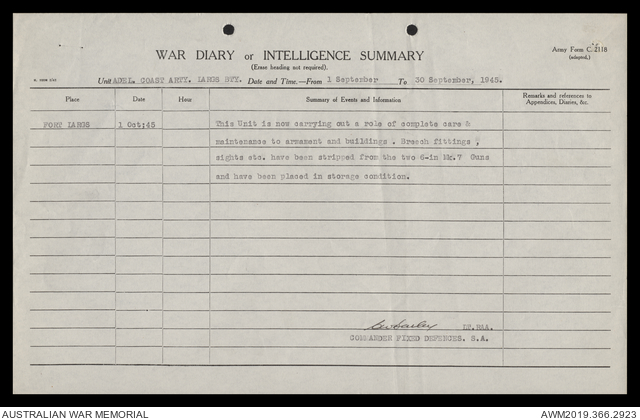 WAR DIARY or INTELLIGENCE SUMMARY
Army Form C. 2118
(Erase heading not required).
(adapted.)
Unit ADEL. COAST ARTY. LARGS BTY. Date and Time.—From 1 September To 30 September, 1945.
Place Date Hour Summary of Events and Information Remarks and references to
Appendices, Diaries, &c.
FORT LARGS 1 Oct:45 This Unit is now carrying out a role of complete care &
maintenance to armament and buildings . Breech fittings ,
sights etc. have been stripped from the two 6-in Mk.7 Guns
and have been placed in storage condition.
LT. RAA.
COMMANDER FIXED DEFENCES. S.A.
AUSTRALIAN WAR MEMORIAL
AWM2019.366.2923